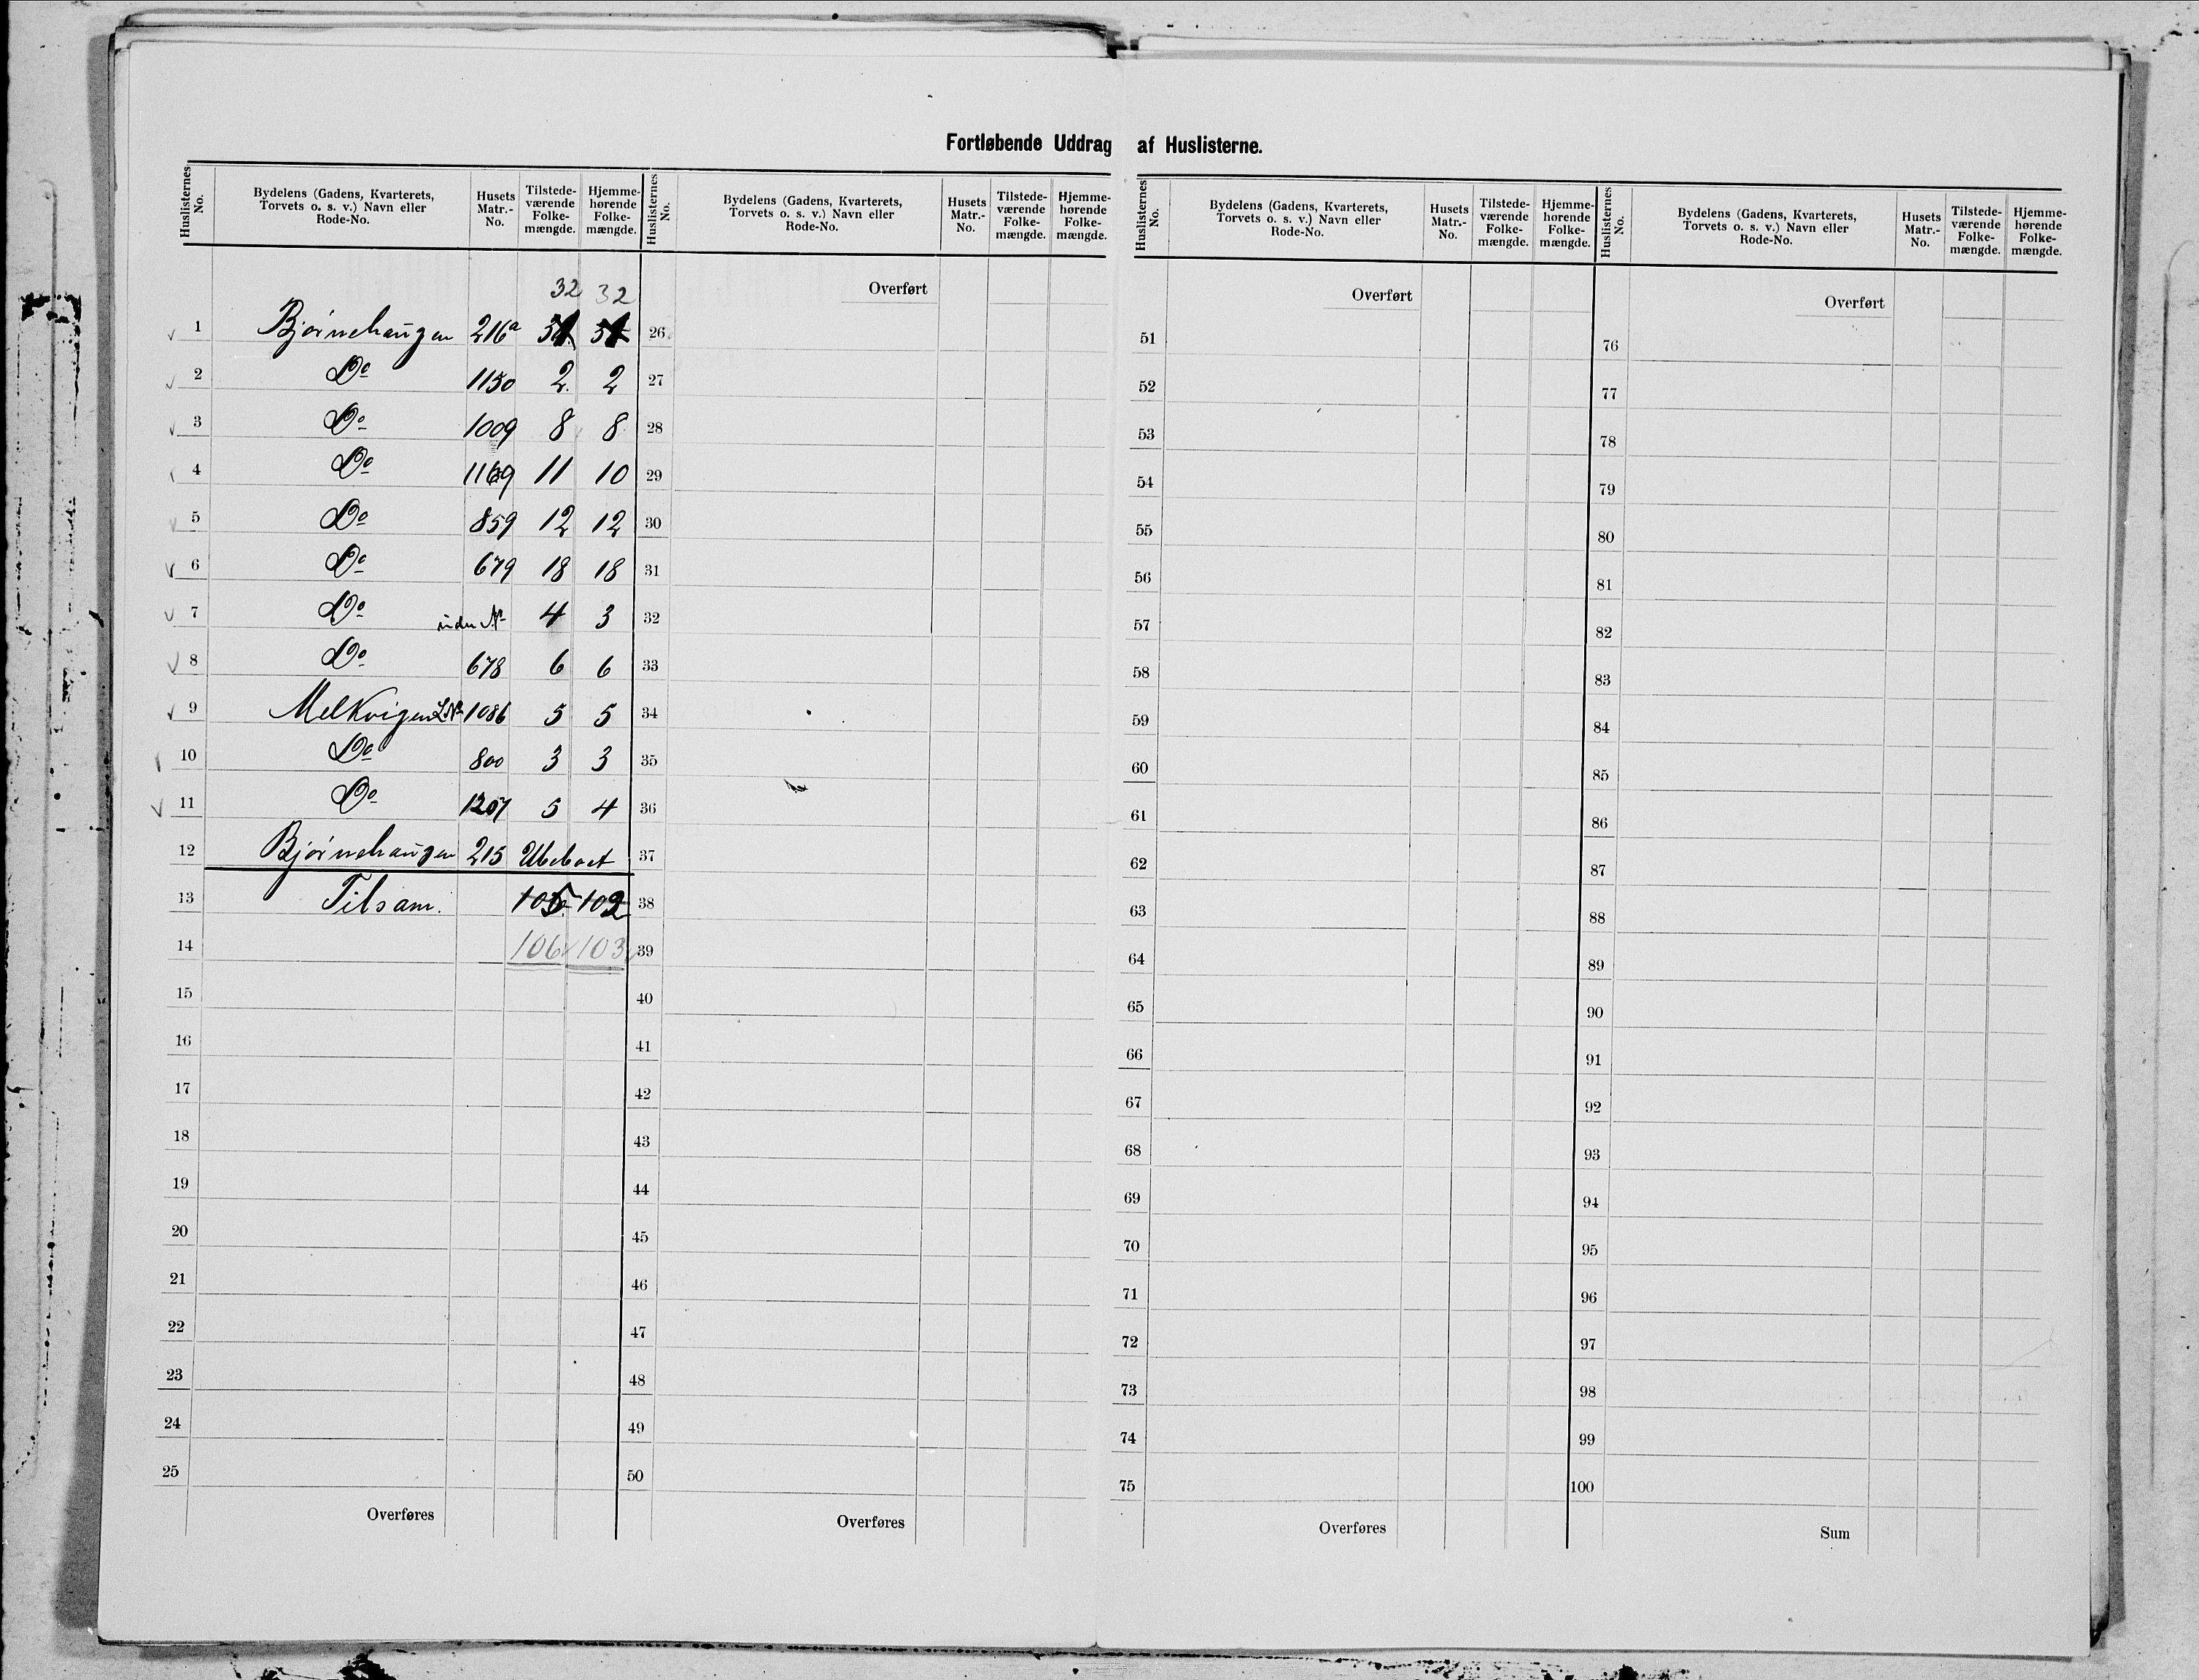 Fortløbende Uddrag af Huslisterne.
Huslisternes No. Bydelens (Gadens, Kvarterets, Torvets o. s. v.) Navn eller Rode-No. Husets Matr.-No. Tilstede-værende Folke-mængde. Hjemme-hørende Folke-mængde.
32 32
1 Bjørnehaugen 216a
2 Do 1150 2 2
3 Do 1009 8 8
4 Do 1169 11 10
5 Do 859 12 12
6 Do 679 18 18
7 Do uden No 4 3
8 Do 678 6 6
9 Melkvigen LNo 1086 5 5
10 Do 800 3 3
11 Do 1207 5 4
12 Bjørnehaugen 215 Ubeboet
13 Tilsam. 105 102
14 106 103
15
16
17
18
19
20
21
22
23
24
25
Overføres
Huslisternes No. Bydelens (Gadens, Kvarterets, Torvets o. s. v.) Navn eller Rode-No. Husets Matr.-No. Tilstede-værende Folke-mængde. Hjemme-hørende Folke-mængde.
Overført
26
27
28
29
30
31
32
33
34
35
36
37
38
39
40
41
42
43
44
45
46
47
48
49
50
Overføres
Huslisternes No. Bydelens (Gadens, Kvarterets, Torvets o. s. v.) Navn eller Rode-No. Husets Matr.-No. Tilstede-værende Folke-mængde. Hjemme-hørende Folke-mængde.
Overført
51
52
53
54
55
56
57
58
59
60
61
62
63
64
65
66
67
68
69
70
71
72
73
74
75
Overføres
Huslisternes No. Bydelens (Gadens, Kvarterets, Torvets o. s. v.) Navn eller Rode-No. Husets Matr.-No. Tilstede-værende Folke-mængde. Hjemme-hørende Folke-mængde.
Overført
76
77
78
79
80
81
82
83
84
85
86
87
88
89
90
91
92
93
94
95
96
97
98
99
100
Sum